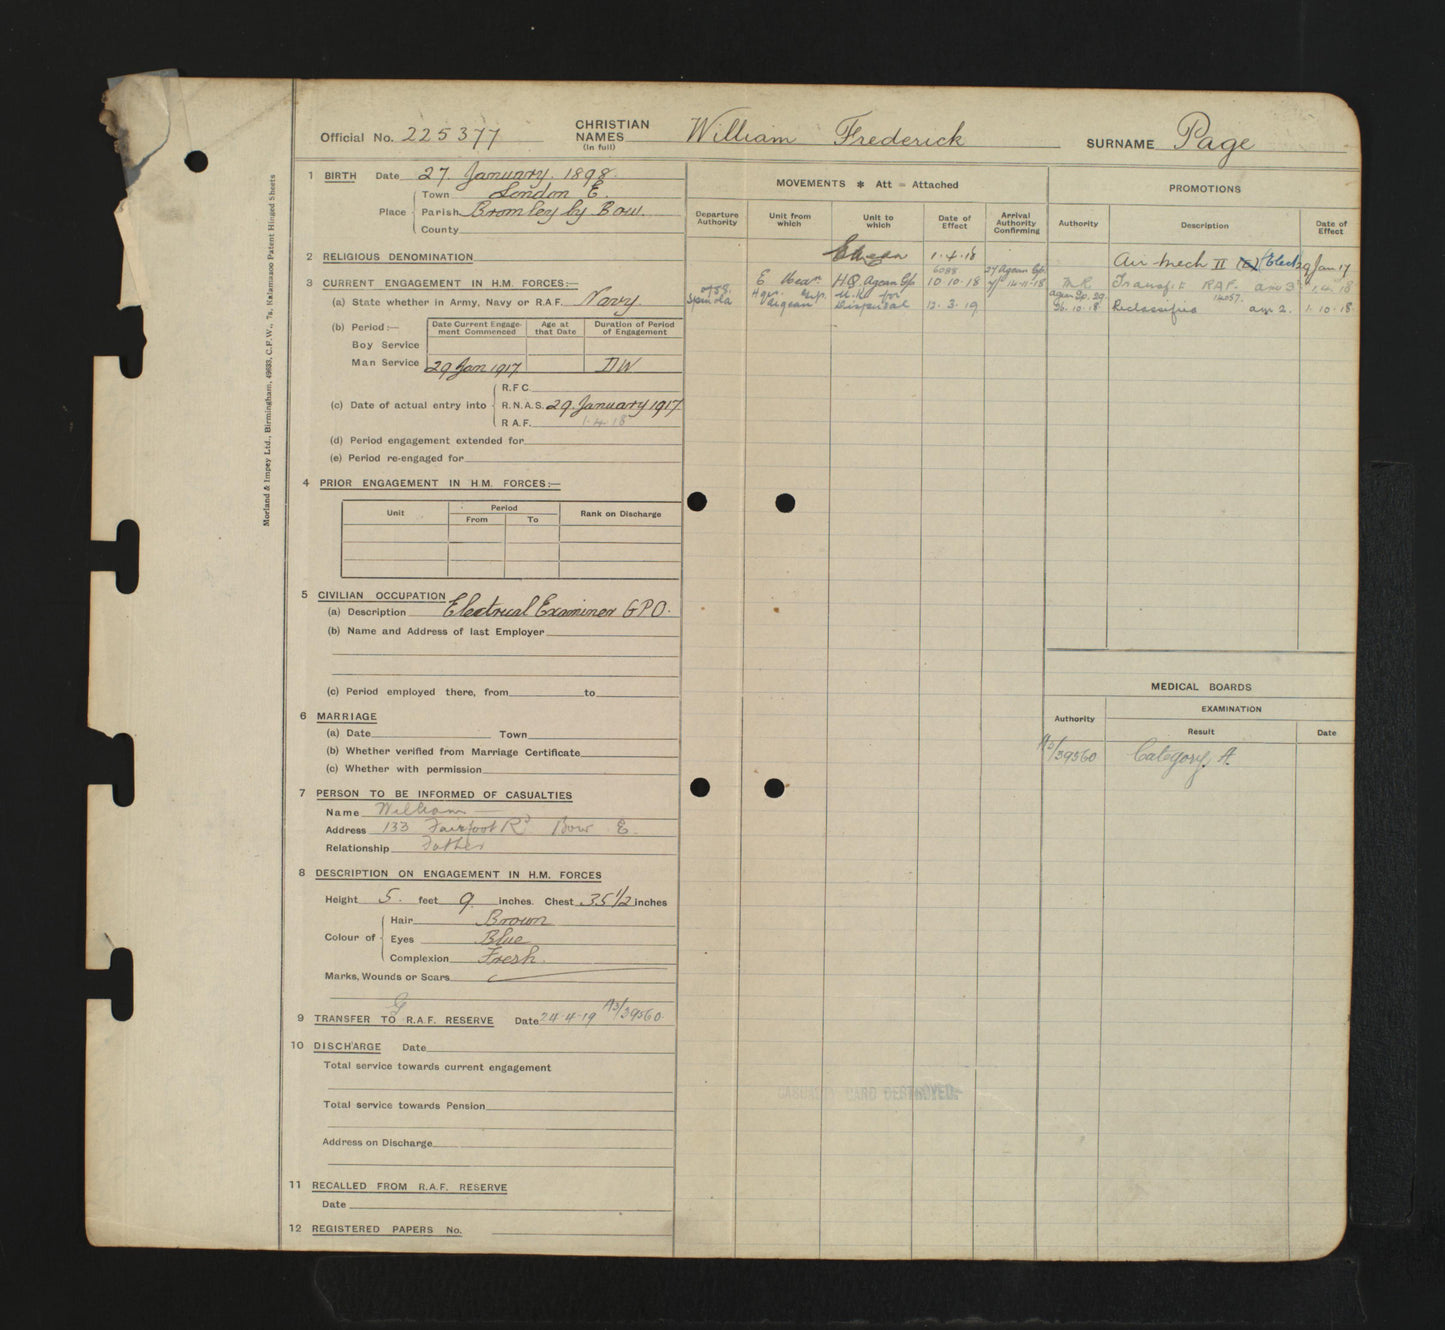 Official No. 225377 CHRISTIAN NAMES (in full) William Frederick SURNAME Page
1 BIRTH Date 27. January. 1898.
Place Town London E.
Parish Bromley by Bow.
County
2 RELIGIOUS DENOMINATION
3 CURRENT ENGAGEMENT IN H.M. FORCES:—
(a) State whether in Army, Navy or R.A.F. Navy.
(b) Period:— Date Current Engagement Commenced Age at that Date Duration of Period of Engagement
Boy Service
Man Service 29 Jan 1917 DW
(c) Date of actual entry into R.F.C.
R.N.A.S. 29. January 1917
R.A.F. 1.4.18
(d) Period engagement extended for
(e) Period re-engaged for
4 PRIOR ENGAGEMENT IN H.M. FORCES:—
Unit Period Rank on Discharge
From To
5 CIVILIAN OCCUPATION
(a) Description Electrical Examiner G P O.
(b) Name and Address of last Employer
(c) Period employed there, from to
6 MARRIAGE
(a) Date Town
(b) Whether verified from Marriage Certificate
(c) Whether with permission
7 PERSON TO BE INFORMED OF CASUALTIES
Name William
Address 133 Fairfoot Rd Bow E.
Relationship Father
8 DESCRIPTION ON ENGAGEMENT IN H.M. FORCES
Height 5. feet 9. inches. Chest 35 1/2 inches
Colour of Hair Brown
Eyes Blue
Complexion Fresh.
Marks, Wounds or Scars
G
9 TRANSFER TO R.A.F. RESERVE Date 24.4.19 A3/39560
10 DISCHARGE Date
Total service towards current engagement
Total service towards Pension
Address on Discharge
11 RECALLED FROM R.A.F. RESERVE
Date
12 REGISTERED PAPERS No.
MOVEMENTS * Att = Attached
Departure Authority Unit from which Unit to which Date of Effect Arrival Authority Confirming
1.4.18
6088 27 Agean Gp.
HQ Agean Gp 10.10.18 14.11.18
Disposal 12.3.19
PROMOTIONS
Authority Description Date of Effect
Air Mech II (E) (Elect) 29 Jan 17
M.R. Transf. to RAF. am 3 1.4.18
Agean Gp. 29.
14057.
26.10.18 Reclassified am 2. 1.10.18.
MEDICAL BOARDS
Authority EXAMINATION
Result Date
A3/39560 Category A.
CASUALTY CARD DESTROYED.
Morland & Impey Ltd., Birmingham, 49633, C.F.W., 7s, Kalamazoo Patent Hinged Sheets